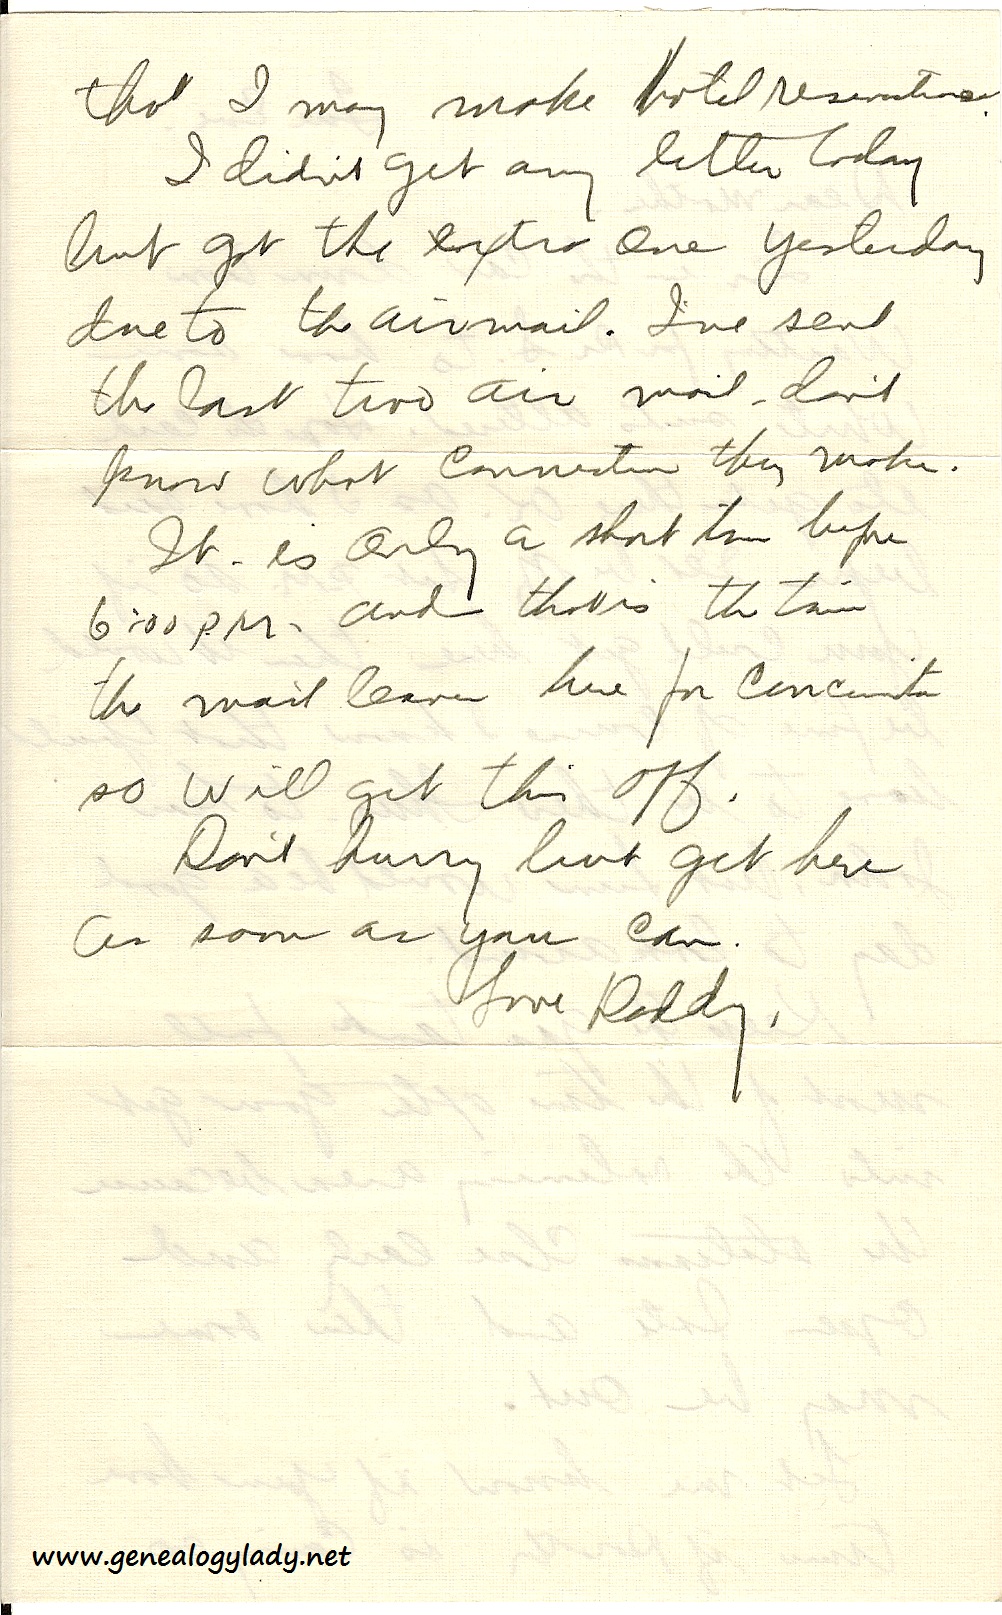 that I may make hotel reservations.
I didn't get any letter today
but got the extra one yesterday
due to the airmail. I've sent
the last two air mail - don't
know what connection they make.
It - is only a short time before
6:00 P.M. and that is the time
the mail leaves here for Cincinnati
so will get this off.
Don't hurry but get here
as soon as you can.
Love Daddy.
www.genealogylady.net